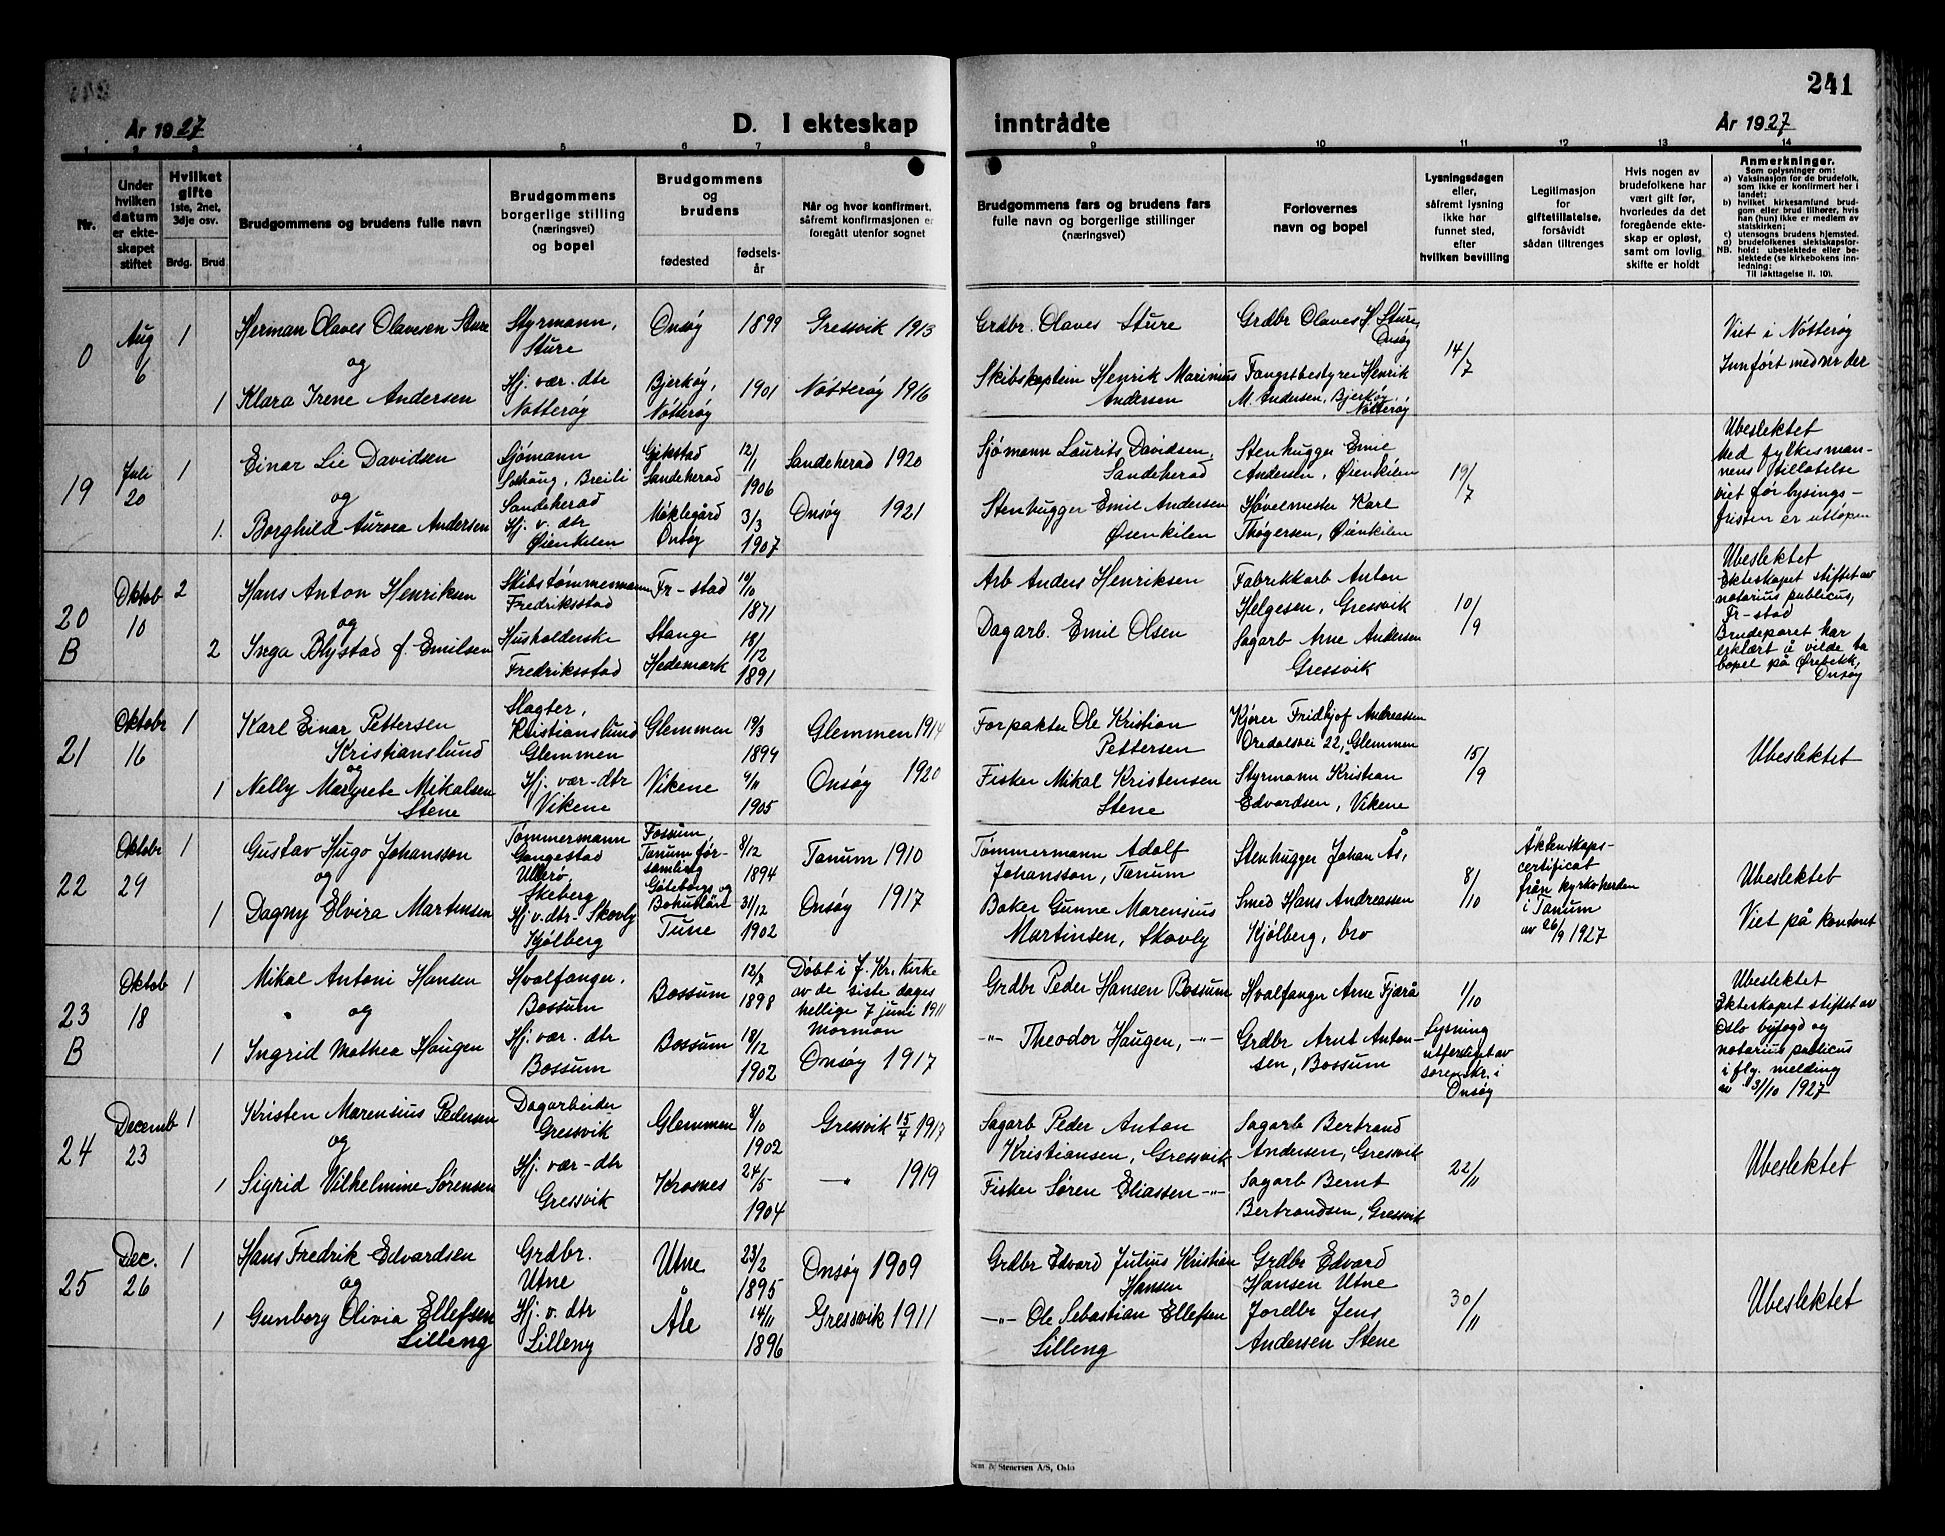 241
År 1927 D. I ekteskap inntrådte År 1927
1 2 3 4 5 6 7 8 9 10 11 12 13 14
Nr.
Under
hvilken
datum
er ekte-
skapet
stiftet
Hvilket
gifte
1ste, 2net,
3dje osv.
Brdg. Brud
Brudgommens og brudens fulle navn
Brudgommens
borgerlige stilling
(næringsvei)
og bopel
Brudgommens
og
brudens
fødested
fødsels-
år
Når og hvor konfirmert,
såfremt konfirmasjonen er
foregått utenfor sognet
Brudgommens fars og brudens fars
fulle navn og borgerlige stillinger
(næringsvei)
Forlovernes
navn og bopel
Lysningsdagen
eller,
såfremt lysning
ikke har
funnet sted,
efter
hvilken bevilling
Legitimasjon
for
giftetillatelse,
forsåvidt
sådan tiltrenges
Hvis nogen av
brudefolkene har
vært gift før,
hvorledes da det
foregående ekte-
skap er opløst,
samt om lovlig
skifte er holdt
Anmerkninger.
Som oplysninger om:
a) Vaksinasjon for de brudefolk,
som ikke er konfirmert her i
landet;
b) hvilket kirkesamfund brud-
gom eller brud tilhører, hvis
han (hun) ikke er medlem av
statskirken;
c) utensogns brudens hjemsted.
d) brudefolkenes slektskapsfor-
NB. hold: ubeslektede eller be-
slektede (se kirkebokens inn-
ledning:
Til iakttagelse II. 10).
0
Aug
6
1
Herman Olaves Olavesen Sture
og
1 Klara Irene Andersen
Styrmann,
Sture
Hj. vær. dtr
Nøtterøy
Onsøy 1899
Bjerkøy,
Nøtterøy 1901
Gressvik 1913
Nøtterøy 1916
Grdbr. Olaves Sture
Skibskaptein Henrik Marinius
Andersen
Grdbr Olaves Sture
Onsøy
Fangstbestyrer Henrik
M. Andersen, Bjerkøy,
Nøtterøy
14/7
Viet i Nøtterøy
Innført med nr der
19
Juli
20
1
Einar Lie Davidsen
og
1. Borghild Aurora Andersen
Sjømann
Breili
Sandeherad
Hj. v. dtr
Øienkilen
Gjekstad
Sandeherad
12/1
1906
Møklegård
Onsøy
3/3
1907
Sandeherad 1920
Onsøy 1921
Sjømann Laurits Davidsen,
Sandeherad
Stenhugger Emil Andersen
Øienkilen
Stenhugger Emil
Andersen, Øienkilen
Høvelmester Karl
Thøgersen, Øienkilen
19/7
Ubeslektet
Med fylkesman-
nens tillatelse
viet før lysings-
fristen er utløpen
20
B
Oktob
10
2
Hans Anton Henriksen
og
2 Inga Blystad f. Emilsen
Skibstømmermann
Fredriksstad
Husholderske
Fredriksstad
Fr-stad
10/10
1871
Stange
Hedemark
18/12
1891
Arb Anders Henriksen
Dagarb. Emil Olsen
Fabrikkarb Anton
Helgesen, Gressvik
Sagarb Arne Andersen
Gressvik
10/9
Ubeslektet
Ekteskapet stiftet av
notarius publicus,
Fr-stad
Brudeparet har
erklært å vilde ta
bopel på Ørebekk,
Onsøy
21
Oktobr
16
1
Karl Einar Pettersen
Kristianslund
og
1 Nelly Margrete Mikalsen
Stene
Slagter,
Kristianslund
Glemmen
Hj. vær-dtr
Vikene
Glemmen
19/3
1899
Vikene
6/11
1905
Glemmen 1914
Onsøy 1920
Forpakter Ole Kristian
Pettersen
Fisker Mikal Kristensen
Stene
Kjører Fridtjof Andreassen
Oredalsvei 22, Glemmen
Styrmann Kristian
Edvardsen, Vikene
15/9
Ubeslektet
22
Oktobr
29
1
Gustav Hugo Johansson
og
1 Dagny Elvira Martinsen
Tømmermann
Gangestad
Ullerø
Skeberg
Hj. v. dtr. Skovly
Kjølberg
Fossum,
Tanum för-
samling
Göteborgs og
Bohuslän
8/12
1894
Tune
31/12
1902
Tanum 1910
Onsøy 1917
Tømmermann Adolf
Johansson, Tanum
Baker Gunne Marensius
Martinsen, Skovly
Stenhugger Johan Ås,
Smed Hans Andreassen
Kjølberg, bro
8/10
Äktenskaps-
certificat
från kyrkoherden
i Tanum
av 26/9 1927
Ubeslektet
Viet på kontoret
23
B
Oktob
18
1
Mikal Antoni Hansen
og
1 Ingrid Mathea Haugen
Hvalfanger,
Bossum
Hj. vær. dtr
Bossum
Bossum
12/7
1898
Bossum
18/12
1902
Døbt i J. Kr. Kirke
av de siste dages
hellige 7 juni 1911
Mormon
Onsøy 1917
Grdbr Peder Hansen Bossum
-"- Theodor Haugen, -"-
Hvalfanger Arne Fjærå
Grdbr Arnt Anton-
sen, Bossum
1/10
Lysning
utferdiget av
sorenskr. i
Onsøy
Ubeslektet
Ekteskapet stiftet av
Oslo byfogd og
notarius publicus
i flg. melding
av 31/10 1927
24
Decemb
23
1
Kristen Marensius Pedersen
og
1 Sigrid Vilhelmine Sørensen
Dagarbeider
Gressvik
Hj. vær-dtr
Gressvik
Glemmen
8/10
1902
Krosnes
24/5
1904
Gressvik 15/4 1917
-"- 1919
Sagarb Peder Anton
Kristiansen, Gressvik
Fisker Søren Eliassen -"-
Sagarb Bertrand
Andersen, Gressvik
Sagarb Bernt
Bertrandsen, Gressvik
22/11
Ubeslektet
25
Dec.
26
1
Hans Fredrik Edvardsen
og
1 Gunborg Olivia Ellefsen
Lilleng
Grdbr.
Utne
Hj. v. dtr
Lilleng
Utne
23/2
1895
Åle
14/11
1896
Onsøy 1909
Gressvik 1911
Grdbr Edvard Julius Kristian
Hansen
-"- Ole Sebastian Ellefsen
Lilleng
Grdbr Edvard
Hansen Utne
Jordbr Jens
Andersen Stene
30/11
Ubeslektet
Sem & Stenersen A/S, Oslo